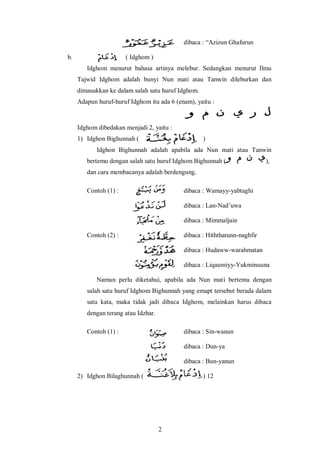 عَزِيْزٌ غَفُوْرٌ dibaca : “Azizun Ghafurun
b. اِدْغَامْ ( Idghom )
Idghom menurut bahasa artinya melebur. Sedangkan menurut Ilmu
Tajwid Idghom adalah bunyi Nun mati atau Tanwin dileburkan dan
dimasukkan ke dalam salah satu huruf Idghom.
Adapun huruf-huruf Idghom itu ada 6 (enam), yaitu :
ل ر ي ن م و
Idghom dibedakan menjadi 2, yaitu :
1) Idghon Bighunnah ( اِدْغَامْ بِغُنَّةْ )
Idghon Bighunnah adalah apabila ada Nun mati atau Tanwin
bertemu dengan salah satu huruf Idghom Bighunnah (ي ن م و),
dan cara membacanya adalah berdengung.
Contoh (1) : وَمَنْ يَبْتَغِ dibaca : Wamayy-yabtaghi
dibaca : Lan-Nad’uwa
dibaca : Mimmaljain
Contoh (2) : حِطَّةٌ نَغْفِرْ dibaca : Hiththatunn-naghfir
dibaca : Hudaww-warahmatan
لِقَوْمٍ يُؤْمِنُوْنَ dibaca : Liqaumiyy-Yukminuuna
Namun perlu diketahui, apabila ada Nun mati bertemu dengan
salah satu huruf Idghom Bighunnah yang emapt tersebut berada dalam
satu kata, maka tidak jadi dibaca Idghom, melainkan harus dibaca
dengan terang atau Idzhar.
Contoh (1) : صِنْوَانٌ dibaca : Sin-wanun
دُنْيَا dibaca : Dun-ya
بُنْيَانٌ dibaca : Bun-yanun
2) Idghon Bilaghunnah ( اِدْغَامْ بِلَاغُنَّةْ ) 12
2